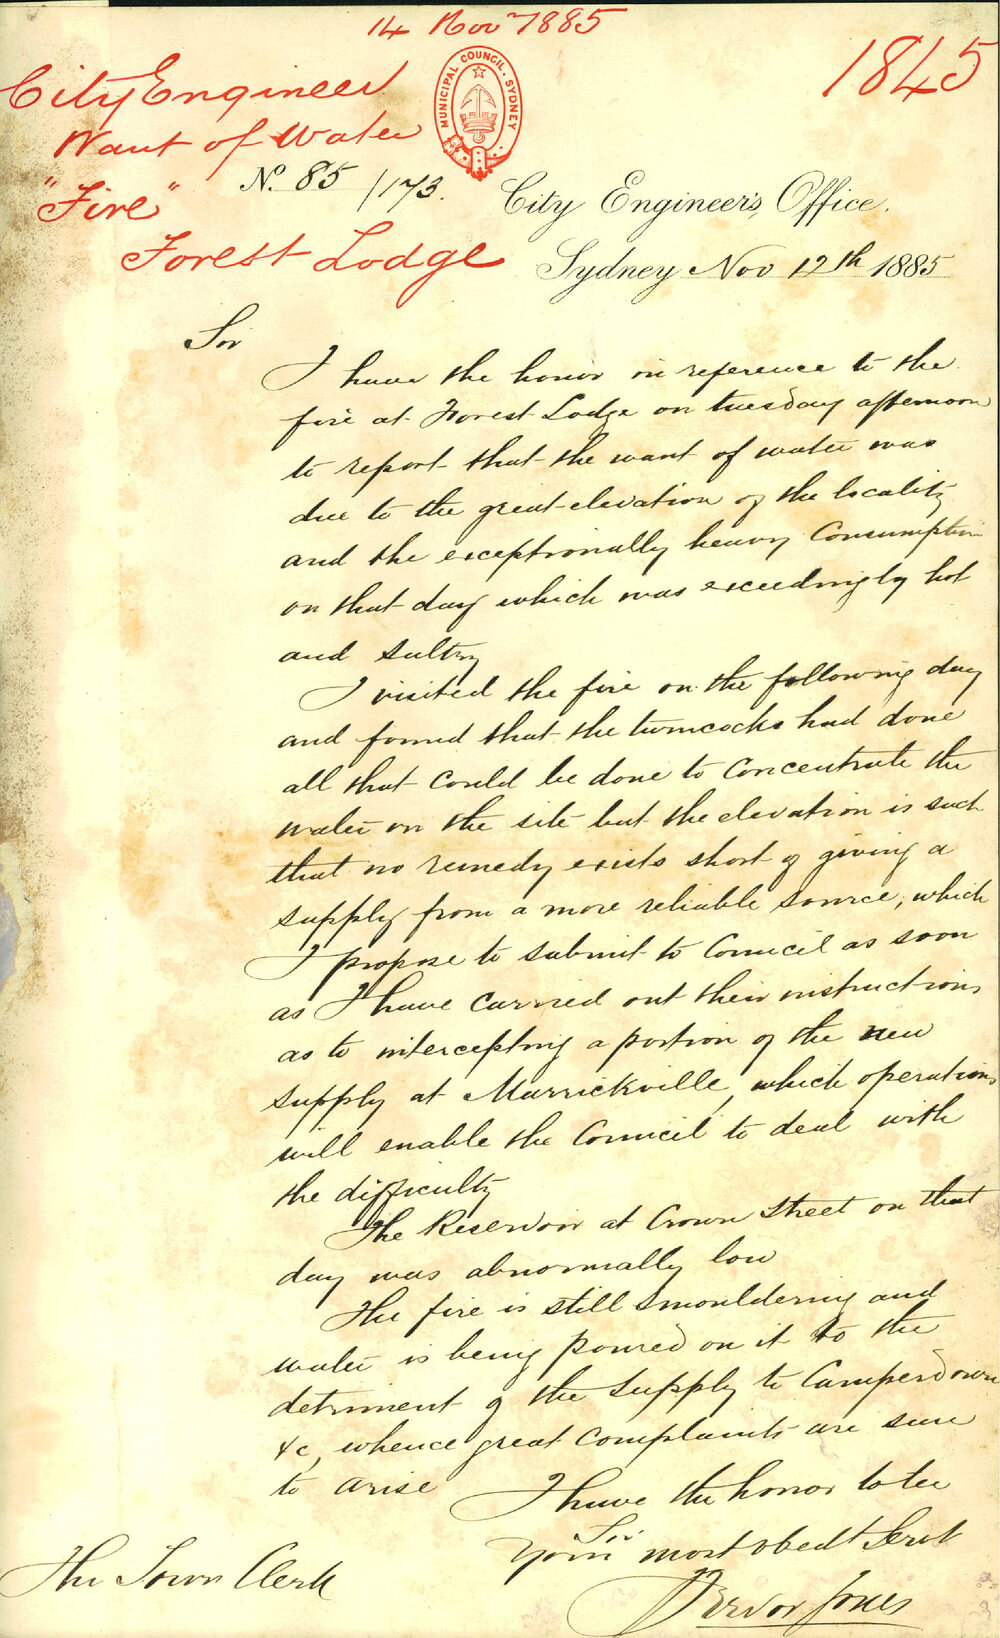 14 Nov 1885
1845
City Engineer
Want of Water
"Fire"
Forest Lodge
MUNICIPAL COUNCIL. SYDNEY
No. 85/173.
City Engineer's Office.
Sydney Nov 12th 1885
Sir
I have the honor in reference to the
fire at Forest Lodge on tuesday afternoon
to report that the want of water was
due to the great elevation of the locality
and the exceptionally heavy Consumption
on that day which was exceedingly hot
and sultry
I visited the fire on the following day
and found that the turncocks had done
all that could be done to concentrate the
water on the site but the elevation is such
that no remedy exists short of giving a
supply from a more reliable source, which
I propose to submit to Council as soon
as I have carried out their instructions
as to intercepting a portion of the new
supply at Marrickville, which operations
will enable the Council to deal with
the difficulty
The Reservoir at Crown Street on that
day was abnormally low
The fire is still smouldering and
water is being poured on it to the
detriment of the supply to Camperdown
&c, whence great complaints are sure
to arise
I have the honor to be
Sir
Your most obedt Servt
Trevor Jones
The Town Clerk